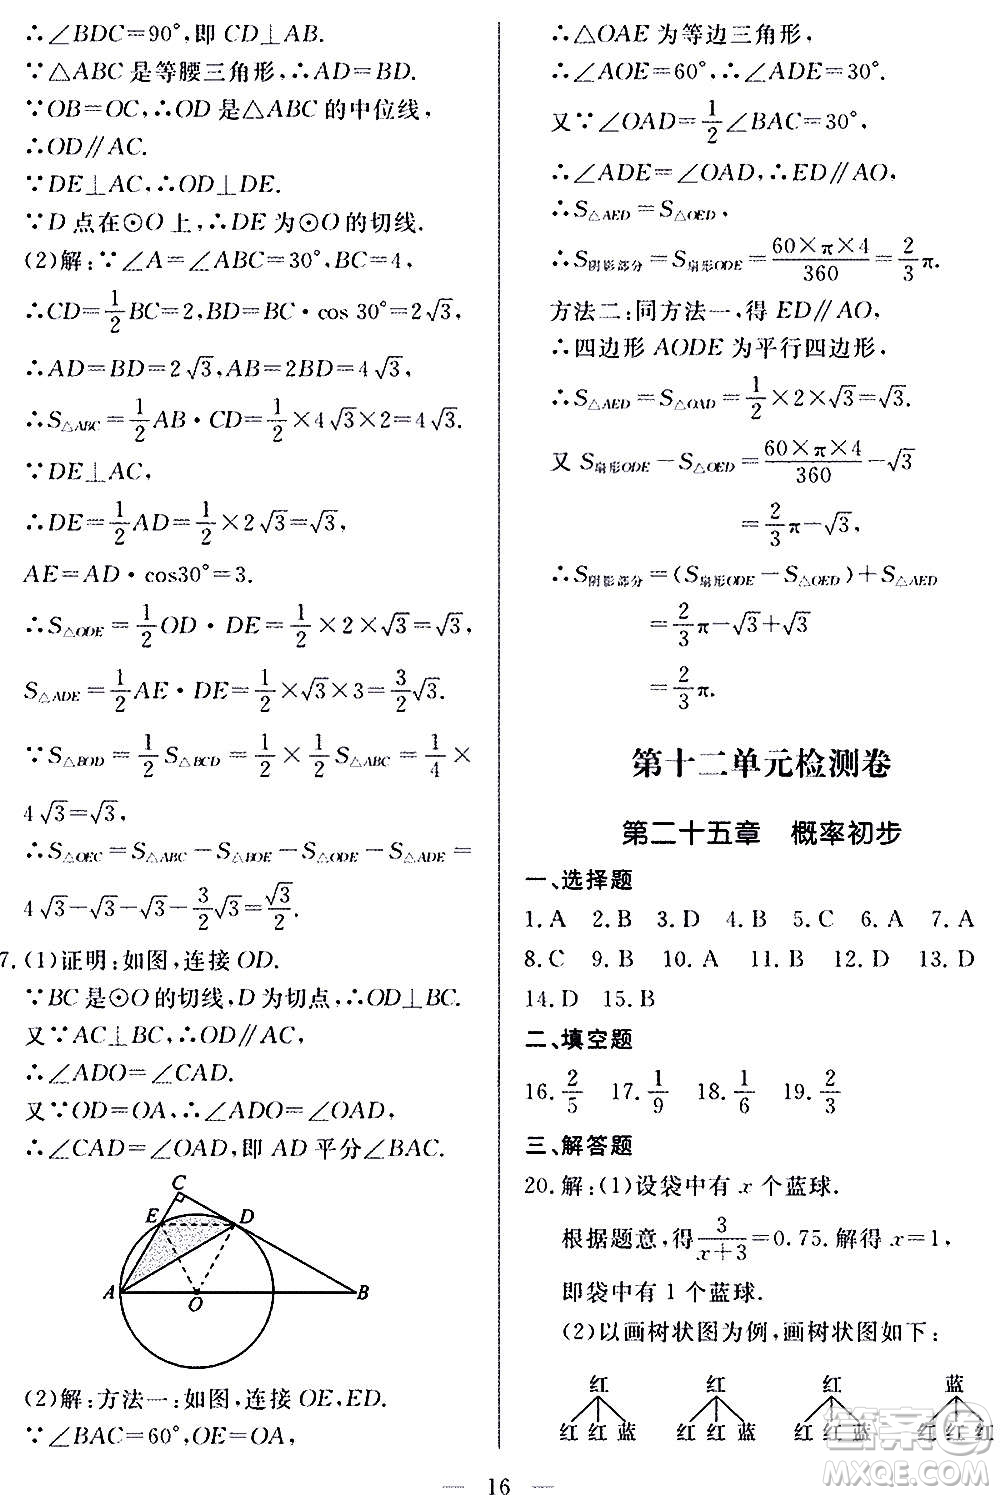 ∴∠BDC=90°,即 CD⊥AB.
∵△ABC 是等腰三角形,∴AD=BD.
∵OB=OC,∴OD 是△ABC 的中位线,
∴OD∥AC.
∵DE⊥AC,∴OD⊥DE.
∵D 点在⊙O 上,∴DE 为⊙O 的切线.
(2)解:∵∠A=∠ABC=30°,BC=4,
∴CD=1/2 BC=2,BD=BC·cos 30°=2√3,
∴AD=BD=2√3,AB=2BD=4√3,
∴S△ABC=1/2 AB·CD=1/2×4√3×2=4√3.
∵DE⊥AC,
∴DE=1/2 AD=1/2×2√3=√3,
AE=AD·cos30°=3.
∴S△ODE=1/2 OD·DE=1/2×2×√3=√3,
S△ADE=1/2 AE·DE=1/2×√3×3=3/2 √3.
∵S△BOD=1/2 S△BCD=1/2×1/2 S△ABC=1/4×
4√3=√3.
∴S△OEC=S△ABC-S△BOE-S△ODE-S△ADE=
4√3-√3-√3-3/2 √3=√3/2.
7.(1)证明:如图,连接 OD.
∵BC 是⊙O 的切线,D 为切点,∴OD⊥BC.
又∵AC⊥BC,∴OD∥AC,
∴∠ADO=∠CAD.
又∵OD=OA,∴∠ADO=∠OAD,
∴∠CAD=∠OAD,即 AD 平分∠BAC.
C
E D
A O B
(2)解:方法一:如图,连接 OE,ED.
∵∠BAC=60°,OE=OA,
∴△OAE 为等边三角形,
∴∠AOE=60°,∴∠ADE=30°.
又∵∠OAD=1/2∠BAC=30°,
∴∠ADE=∠OAD,∴ED∥AO,
∴S△AED=S△OED,
∴S阴影部分=S扇形ODE=60×π×4/360=2/3 π.
方法二:同方法一,得 ED∥AO,
∴四边形 AODE 为平行四边形,
∴S△AED=S△OAD=1/2×2×√3=√3.
又 S扇形ODE-S△OED=60×π×4/360-√3
=2/3 π-√3,
∴S阴影部分=(S扇形ODE-S△OED)+S△AED
=2/3 π-√3+√3
=2/3 π.
第十二单元检测卷
第二十五章 概率初步
一、选择题
1.A 2.B 3.D 4.B 5.C 6.A 7.A
8.C 9.B 10.A 11.B 12.A 13.D
14.D 15.B
二、填空题
16.2/5 17.1/9 18.1/6 19.2/3
三、解答题
20.解:(1)设袋中有 x 个蓝球.
根据题意,得3/(x+3)=0.75.解得 x=1,
即袋中有 1 个蓝球.
(2)以画树状图为例,画树状图如下:
红 红 红 蓝
红 红 蓝 红 红 蓝 红 红 蓝 红 红 红
16
答案圈
MXQE.COM